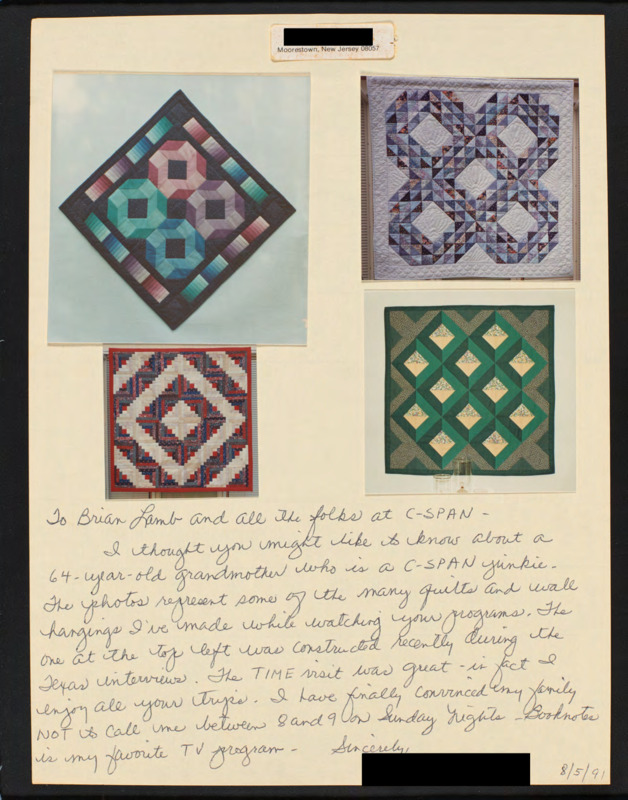 Moorestown, New Jersey 08057
To Brian Lamb and all the folks at C-SPAN -
I thought you might like to know about a
64-year-old grandmother who is a C-SPAN junkie.
The photos represent some of the many quilts and wall
hangings I've made while watching your programs. The
one at the top left was constructed recently during the
Texas interviews. The TIME visit was great - in fact I
enjoy all your trips. I have finally convinced my family
NOT to call me between 8 and 9 on Sunday nights - Booknotes
is my favorite TV program - Sincerely,
8/5/91